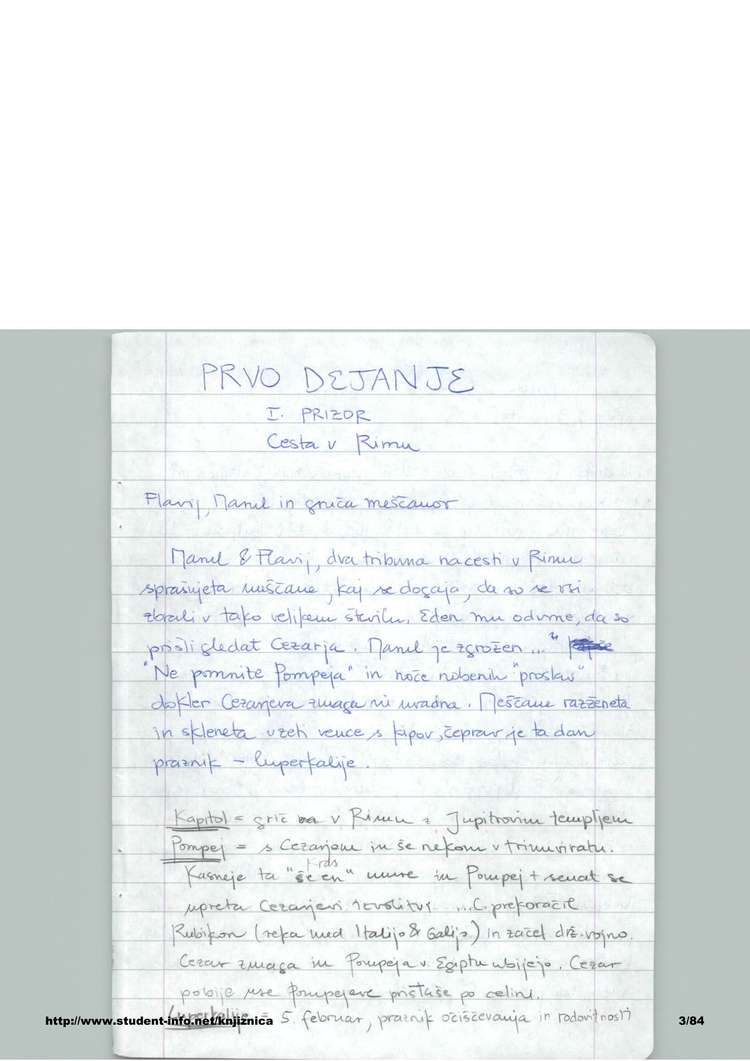 PRVO DEJANJE
I. PRIZOR
Cesta v Rimu
Flavij, Marul in gruča meščanov
Marul & Flavij, dva tribuna na cesti v Rimu
sprašujeta muščane, kaj se dogaja, da so se vsi
zbrali v tako velikem številu. Eden mu odvrne, da so
prišli gledat Cezarja. Marul je zgrožen ..."
"Ne pomnite Pompeja" in noče nobenih "proslav"
dokler Cezarjeva zmaga ni uradna. Meščane razženeta
in skleneta vzeti vence s kipov, čeprav je ta dan
praznik – luperkalije.
Kapitol = grič v Rimu z Jupitrovim templjem
Pompej = s Cezarjem in še nekom v triumviratu.
Kras
Kasneje ta "še en" umre in Pompej + senat se
upreta Cezarjevi ... C. prekoračil
Rubikon (reka med Italijo & Galijo) in začel drž. vojno.
Cezar zmaga in Pompeja v Egiptu ubijejo. Cezar
pobije vse Pompejeve pristaše po celini.
Luperkalije = 5. februar, praznik očiščevanja in rodovitnosti
http://www.student-info.net/knjižnica
3/84